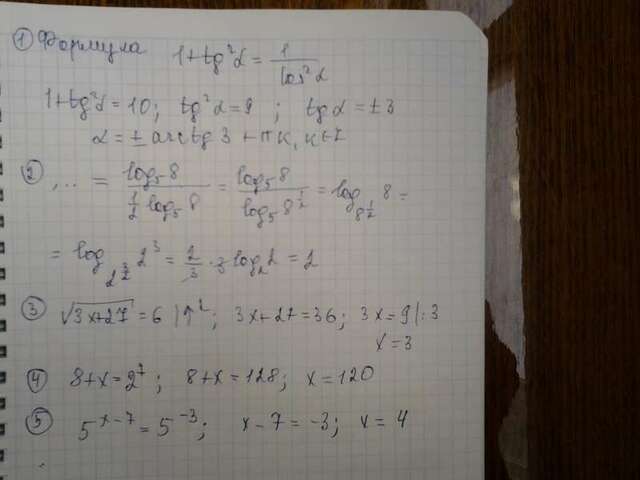 ① Формула 1+tg²α = 1/cos²α
1+tg²α = 10; tg²α = 9 ; tgα = ±3
α = ± arctg 3 + πk, k∈Z
② ... = log₅8 / ½ log₅8 = log₅8 / log₅8^½ = log_{8^½} 8 =
= log_{2^{3/2}} 2³ = 2/3 · 3 log₂2 = 2
③ √3x+27 = 6 |↑²; 3x+27 = 36; 3x = 9 |:3
x = 3
④ 8+x = 2⁷; 8+x = 128; x = 120
⑤ 5^{x-7} = 5^{-3}; x-7 = -3; x = 4